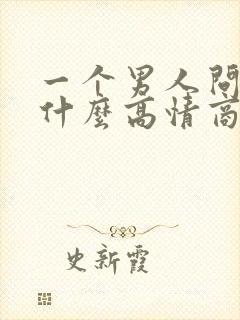 一个男人问
什麼高情商
史新霞